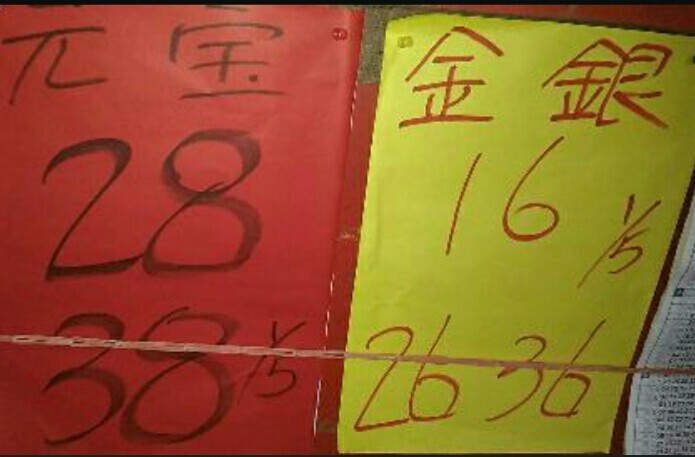 元宝
28
38 1/5
金銀
16 1/5
26 36